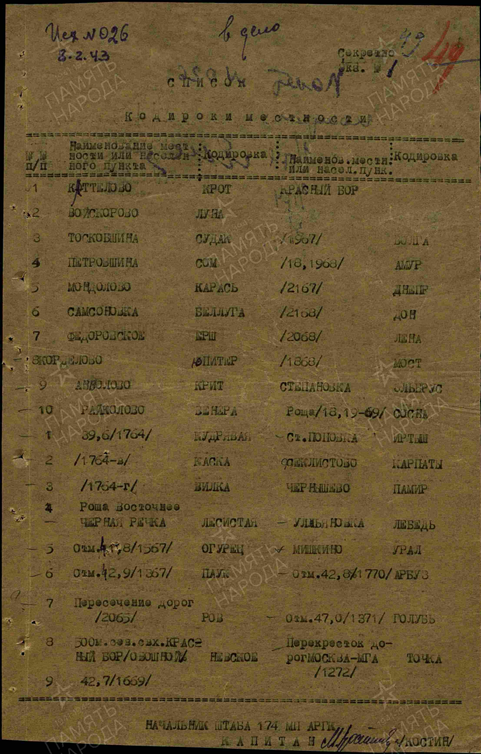 Исх №026
8-2.43
в дело
49
Секретно
экз. № 1
СПИСОК
Кодировки местности
№№ п/п Наименование местности или населенного пункта Кодировка Наименов.местн. или насел.пунк. Кодировка
1 КАТТЕЛОВО КРОТ КРАСНЫЙ БОР
2 ВОЙСКОРОВО ЛУНА
3 ТОСКОВШИНА СУДАК /1967/ ВОЛГА
4 ПЕТРОВШИНА СОМ /18,1968/ АМУР
5 МОНДОЛОВО КАРАСЬ /2167/ ДНЕПР
6 САМСОНОВКА БЕЛЛУГА /2168/ ДОН
7 ФЕДОРОВСКОЕ ЕРШ /2068/ ЛЕНА
8 КОРДЕЛОВО ЮПИТЕР /1868/ МОСТ
9 АННОЛОВО КРИТ СТЕПАНОВКА ЭЛЬБРУС
10 РАЙКОЛОВО ВЕНЕРА Роща/18,19-69/ СОСНА
1 39,6/1764/ КУДРЯВАЯ Ст.ПОПОВКА ИРТЫШ
2 /1764-в/ КАСКА ФЕКЛИСТОВО КАРПАТЫ
3 /1764-г/ ВИЛКА ЧЕРНЫШЕВО ПАМИР
4 Роща Восточнее
ЧЕРНАЯ РЕЧКА ЛЕСИСТАЯ УЛЬЯНОВКА ЛЕБЕДЬ
5 Отм.41,8/1567/ ОГУРЕЦ МИШКИНО УРАЛ
6 Отм.42,9/1367/ ПАУК Отм.42,8/1770/ АРБУЗ
7 Пересечение дорог
/2065/ РОВ Отм.47,0/1371/ ГОЛУБЬ
8 500м.сев.свх.КРАСНЫЙ БОР/овощной/ НЕВСКОЕ Перекресток дорог МОСКВА-МГА /1272/ ТОЧКА
9 42,7/1669/
НАЧАЛЬНИК ШТАБА 174 МП АРГК
КАПИТАН /КОСТИН/
ПАМЯТЬ НАРОДА